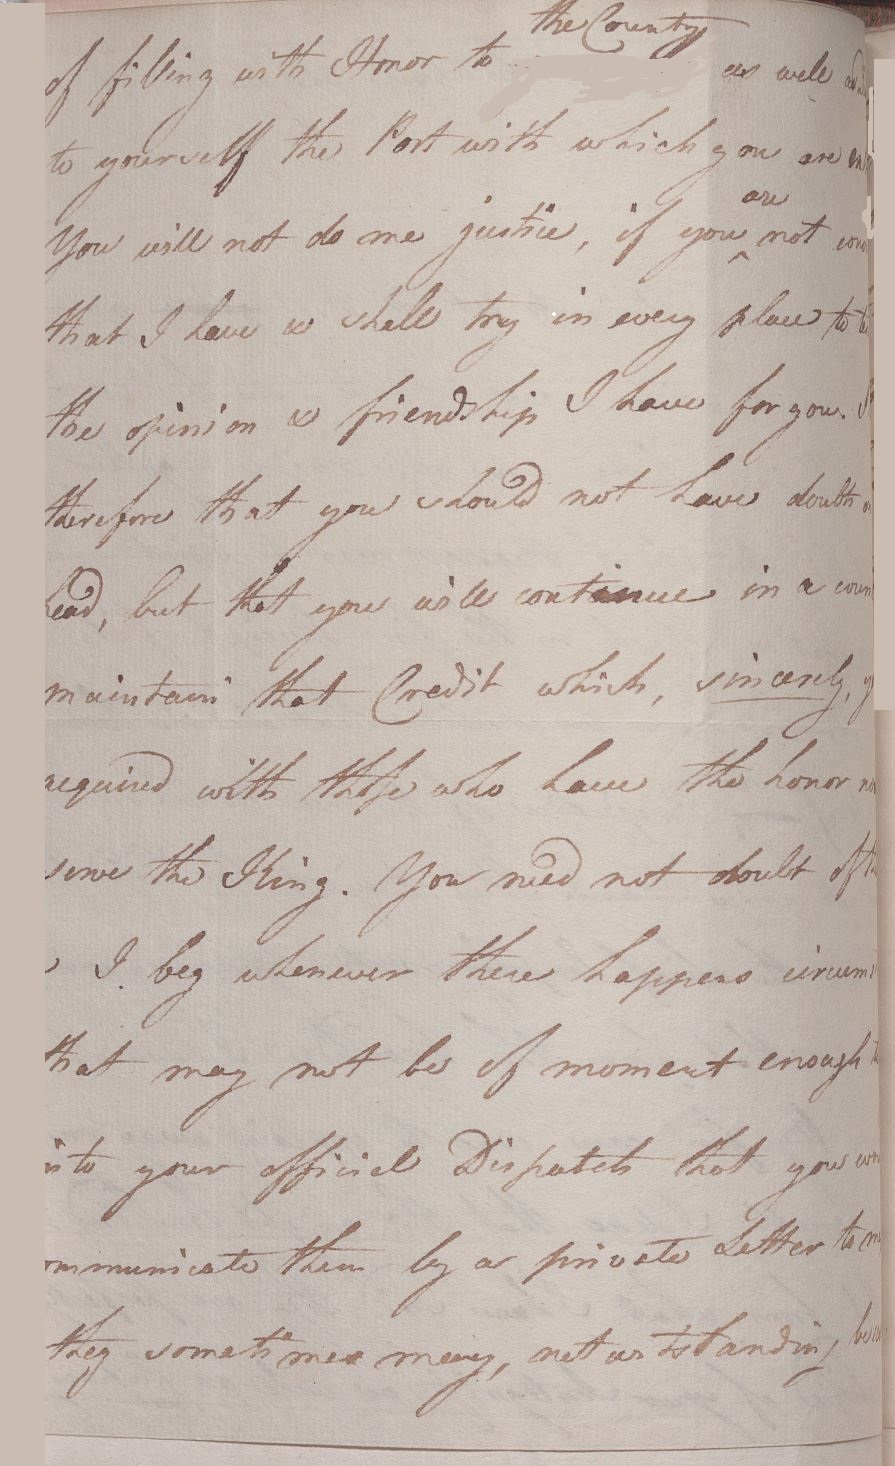 the County
of filling with Honor to as well
to yourself the Post with which you are
are
You will not do me justice, if you ^ not
that I have & shall try in every place to
the opinion & friendship I have for you.
therefore that you should not have doubts
head, but that you will continue in a
maintain that Credit which, sincerely,
acquired with those who have the honor
serve the King. You need not doubt of
I beg whenever there happens
that may not be of moment enough
into your official Dispatch that you
communicate them by a private Letter to
they sometimes may, notwithstanding